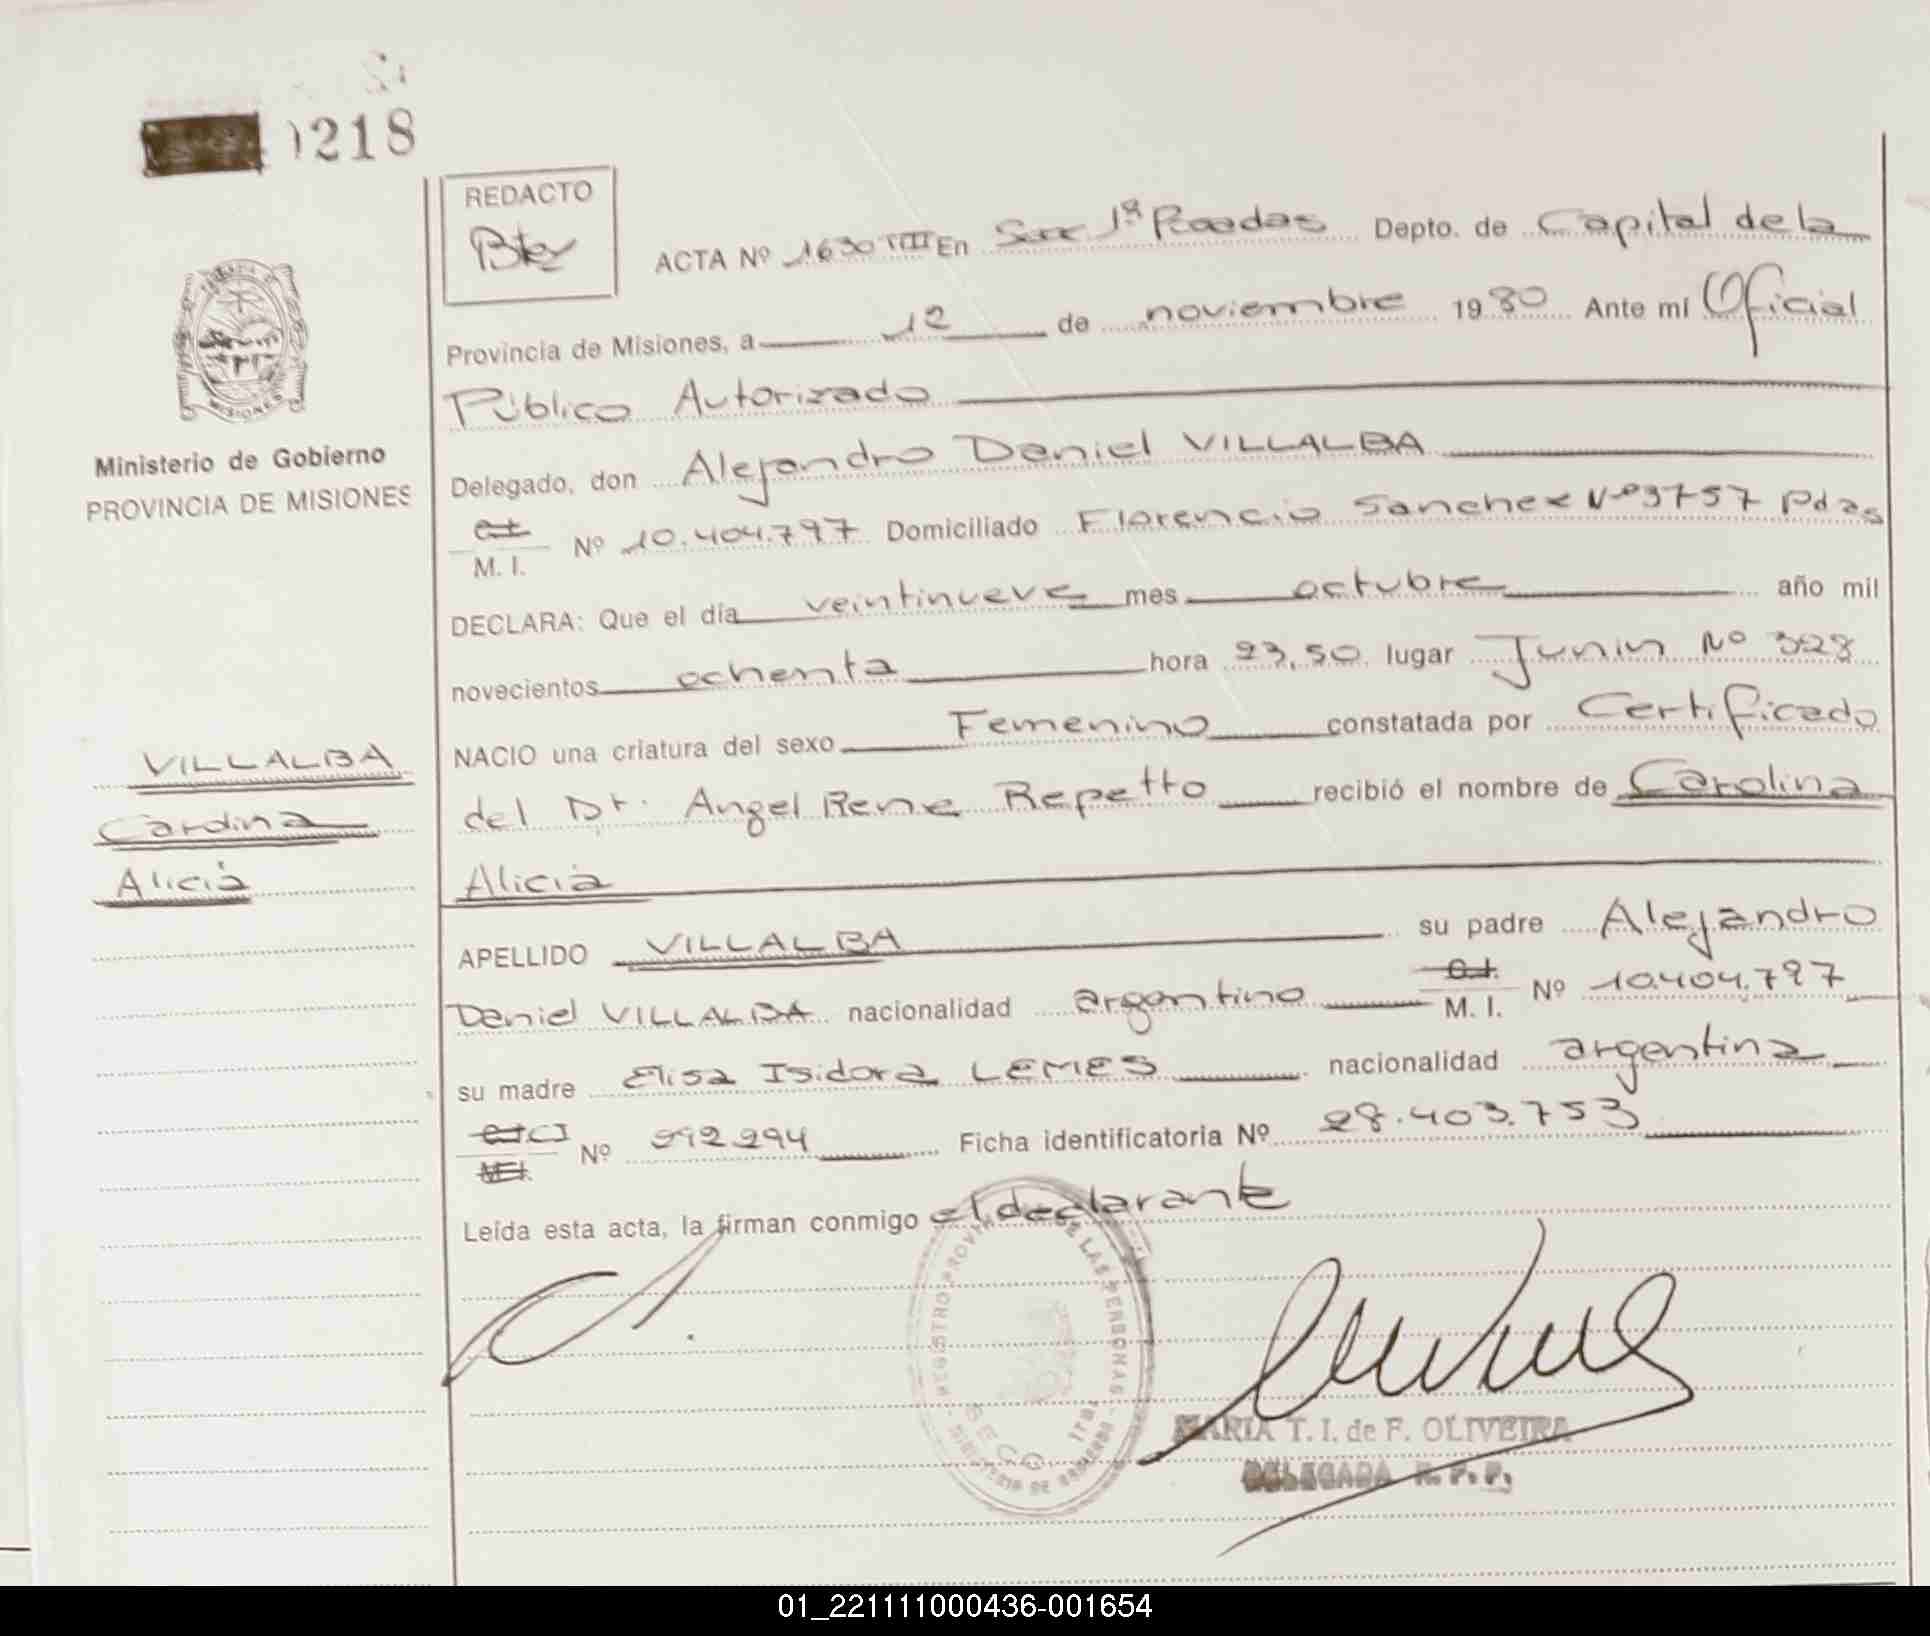 1218
REDACTO
ACTA Nº 1630 TVIII En Secc 1ª Posadas Depto. de Capital de la
Provincia de Misiones, a 12 de noviembre 1980 Ante mí Oficial
Público Autorizado
Delegado, don Alejandro Daniel VILLALBA
M. I. Nº 10.404.797 Domiciliado Florencio Sanchez Nº 3757 Pdas
DECLARA: Que el día veintinueve mes octubre año mil
novecientos ochenta hora 23,50 lugar Junin Nº 328
NACIO una criatura del sexo Femenino constatada por Certificado
del Dr. Angel Rene Repetto recibió el nombre de Carolina
Alicia
APELLIDO VILLALBA su padre Alejandro
Daniel VILLALBA nacionalidad argentino C.I. M. I. Nº 10.404.797
su madre Elisa Isidora LEMES nacionalidad argentina
CI Nº 292.294 Ficha identificatoria Nº 28.403.753
Leída esta acta, la firman conmigo el declarante
MISIONES
Ministerio de Gobierno
PROVINCIA DE MISIONES
VILLALBA
Carolina
Alicia
REGISTRO PROVINCIAL DE LAS PERSONAS
MINISTERIO DE GOBIERNO
MARIA T. I. de F. OLIVEIRA
DELEGADA R. P. P.
01_221111000436-001654